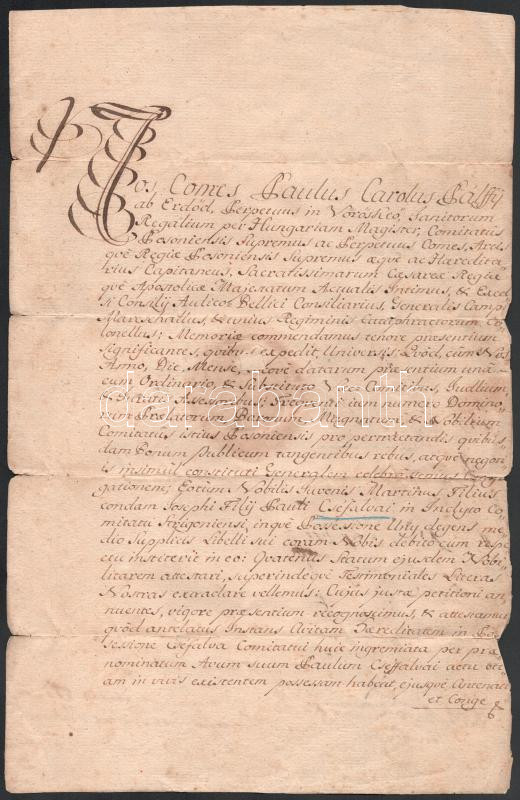 Nos, Comes Paulus Carolus Pálffÿ
ab Erdőd, Perpetuus in Vöröskeö, Janitorum
Regalium per Hungariam Magister, Comitatûs
Posoniensis Supremus ac Perpetuus Comes, Arcis
què Regiæ Posoniensis Supremus æquè ac Heredita-
rius Capitaneus, Sacratissimarum Cæsareæ Regiæ
què Apostolicæ Majestatum Actualis Intimus, & Excel
si Consilij Aulico Bellici Consiliarius, Generalis Campi
Mareschallus, & unius Regiminis Cataphractorum Co-
lonellus; Memoriæ commendamus tenore præsentium
significantes, quibus expedit, Universis. Quòd, cum Nos
Anno, Die, Mense, Locoque datarum præsentium unà
cum Ordinario, & Substituto Vice Comitibus, Judlium
& Juratis Assessoribus, Frequenti item numero Domino-
rum Prælatorum Baronum Magnatum & Nobilium
Comitatûs istius Posoniensis pro pertractandis quibus
dam bonum publicum tangentibus rebus, atque negoti-
is insimul constituti Generalem celebrassemus Congre
gationem; Eotum Nobilis Juvenis Martinus Filius
condam Josephi Filij Pauli Csefalvai in Inclyto Co-
mitatu Strigoniensi, inquè Possessione Uny degens me-
dio Supplicis Libelli sui coram Nobis debito cum respe
ctu institerit in eo: Quatenus Statum ejusdem Nobi-
litarem attestari, superindequè Testimoniales Literas
Nostras extradare vellemus: Cujus justæ petitioni an-
nuentes, vigore præsentium recognoscimus, & attestamur
quòd antelatus Instans Avitam Hæreditatem in Pos
sessione Csefalva Comitatui huic ingremiata per præ
nominatum Avum suum Paulum Cseffalvai actu eti-
am in vivis existentem possessam habeat, ejusquè Antenati
et Conge
darabanth